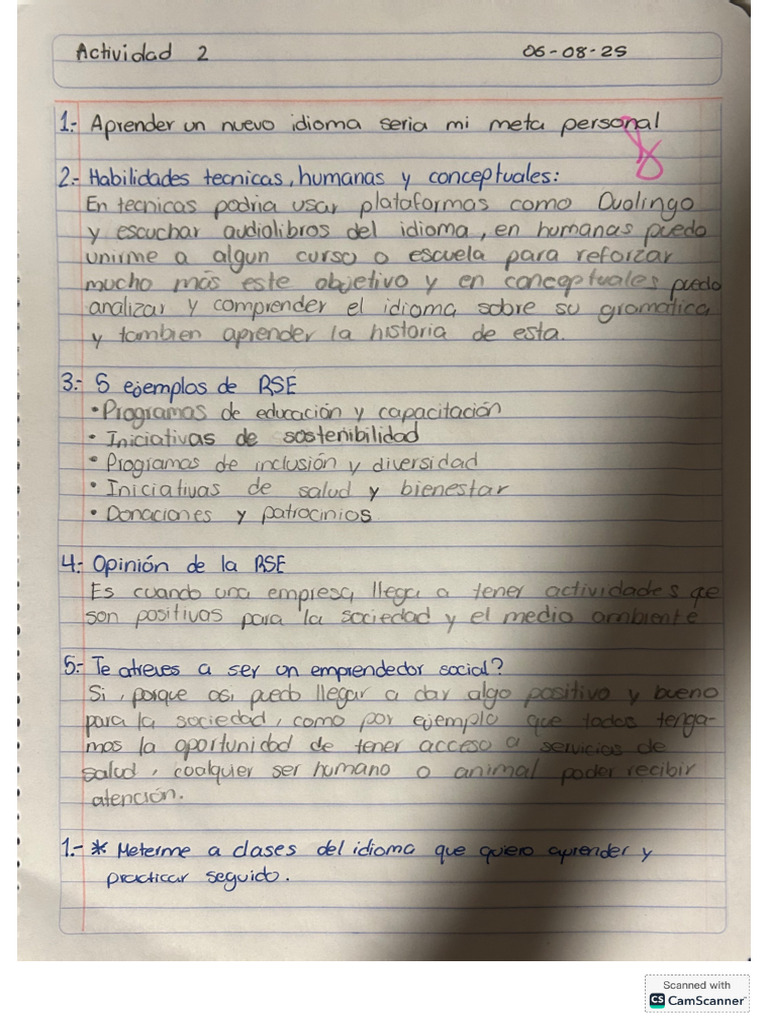 Actividad 2 06-08-25
1.- Aprender un nuevo idioma seria mi meta personal
8
2.- Habilidades tecnicas, humanas y conceptuales:
En tecnicas podria usar plataformas como Duolingo
y escuchar audiolibros del idioma, en humanas puedo
unirme a algun curso o escuela para reforzar
mucho más este objetivo y en conceptuales puedo
analizar y comprender el idioma sobre su gramatica
y tambien aprender la historia de esta.
3.- 5 ejemplos de RSE
• Programas de educación y capacitación
• Iniciativas de sostenibilidad
• Programas de inclusión y diversidad
• Iniciativas de salud y bienestar
• Donaciones y patrocinios
4.- Opinión de la RSE
Es cuando una empresa llega a tener actividades qe
son positivas para la sociedad y el medio ambiente
5.- Te atreves a ser un emprendedor social?
Si, porque asi puedo llegar a dar algo positivo y bueno
para la sociedad, como por ejemplo que todos tenga-
mos la oportunidad de tener acceso a servicios de
salud, cualquer ser humano o animal poder recibir
atención.
1.- * Meterme a clases del idioma que quiero aprender y
practicar seguido.
Scanned with
CS CamScanner